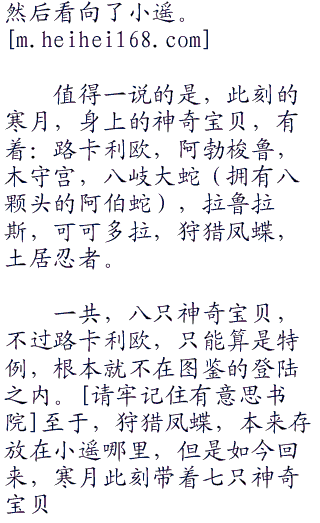 然后看向了小遥。
[m.heihei168.com]
值得一说的是，此刻的
寒月，身上的神奇宝贝，有
着：路卡利欧，阿勃梭鲁，
木守宫，八岐大蛇（拥有八
颗头的阿伯蛇），拉鲁拉
斯，可可多拉，狩猎凤蝶，
土居忍者。
一共，八只神奇宝贝，
不过路卡利欧，只能算是特
例，根本就不在图鉴的登陆
之内。[请牢记住有意思书
院]至于，狩猎凤蝶，本来存
放在小遥哪里，但是如今回
来，寒月此刻带着七只神奇
宝贝